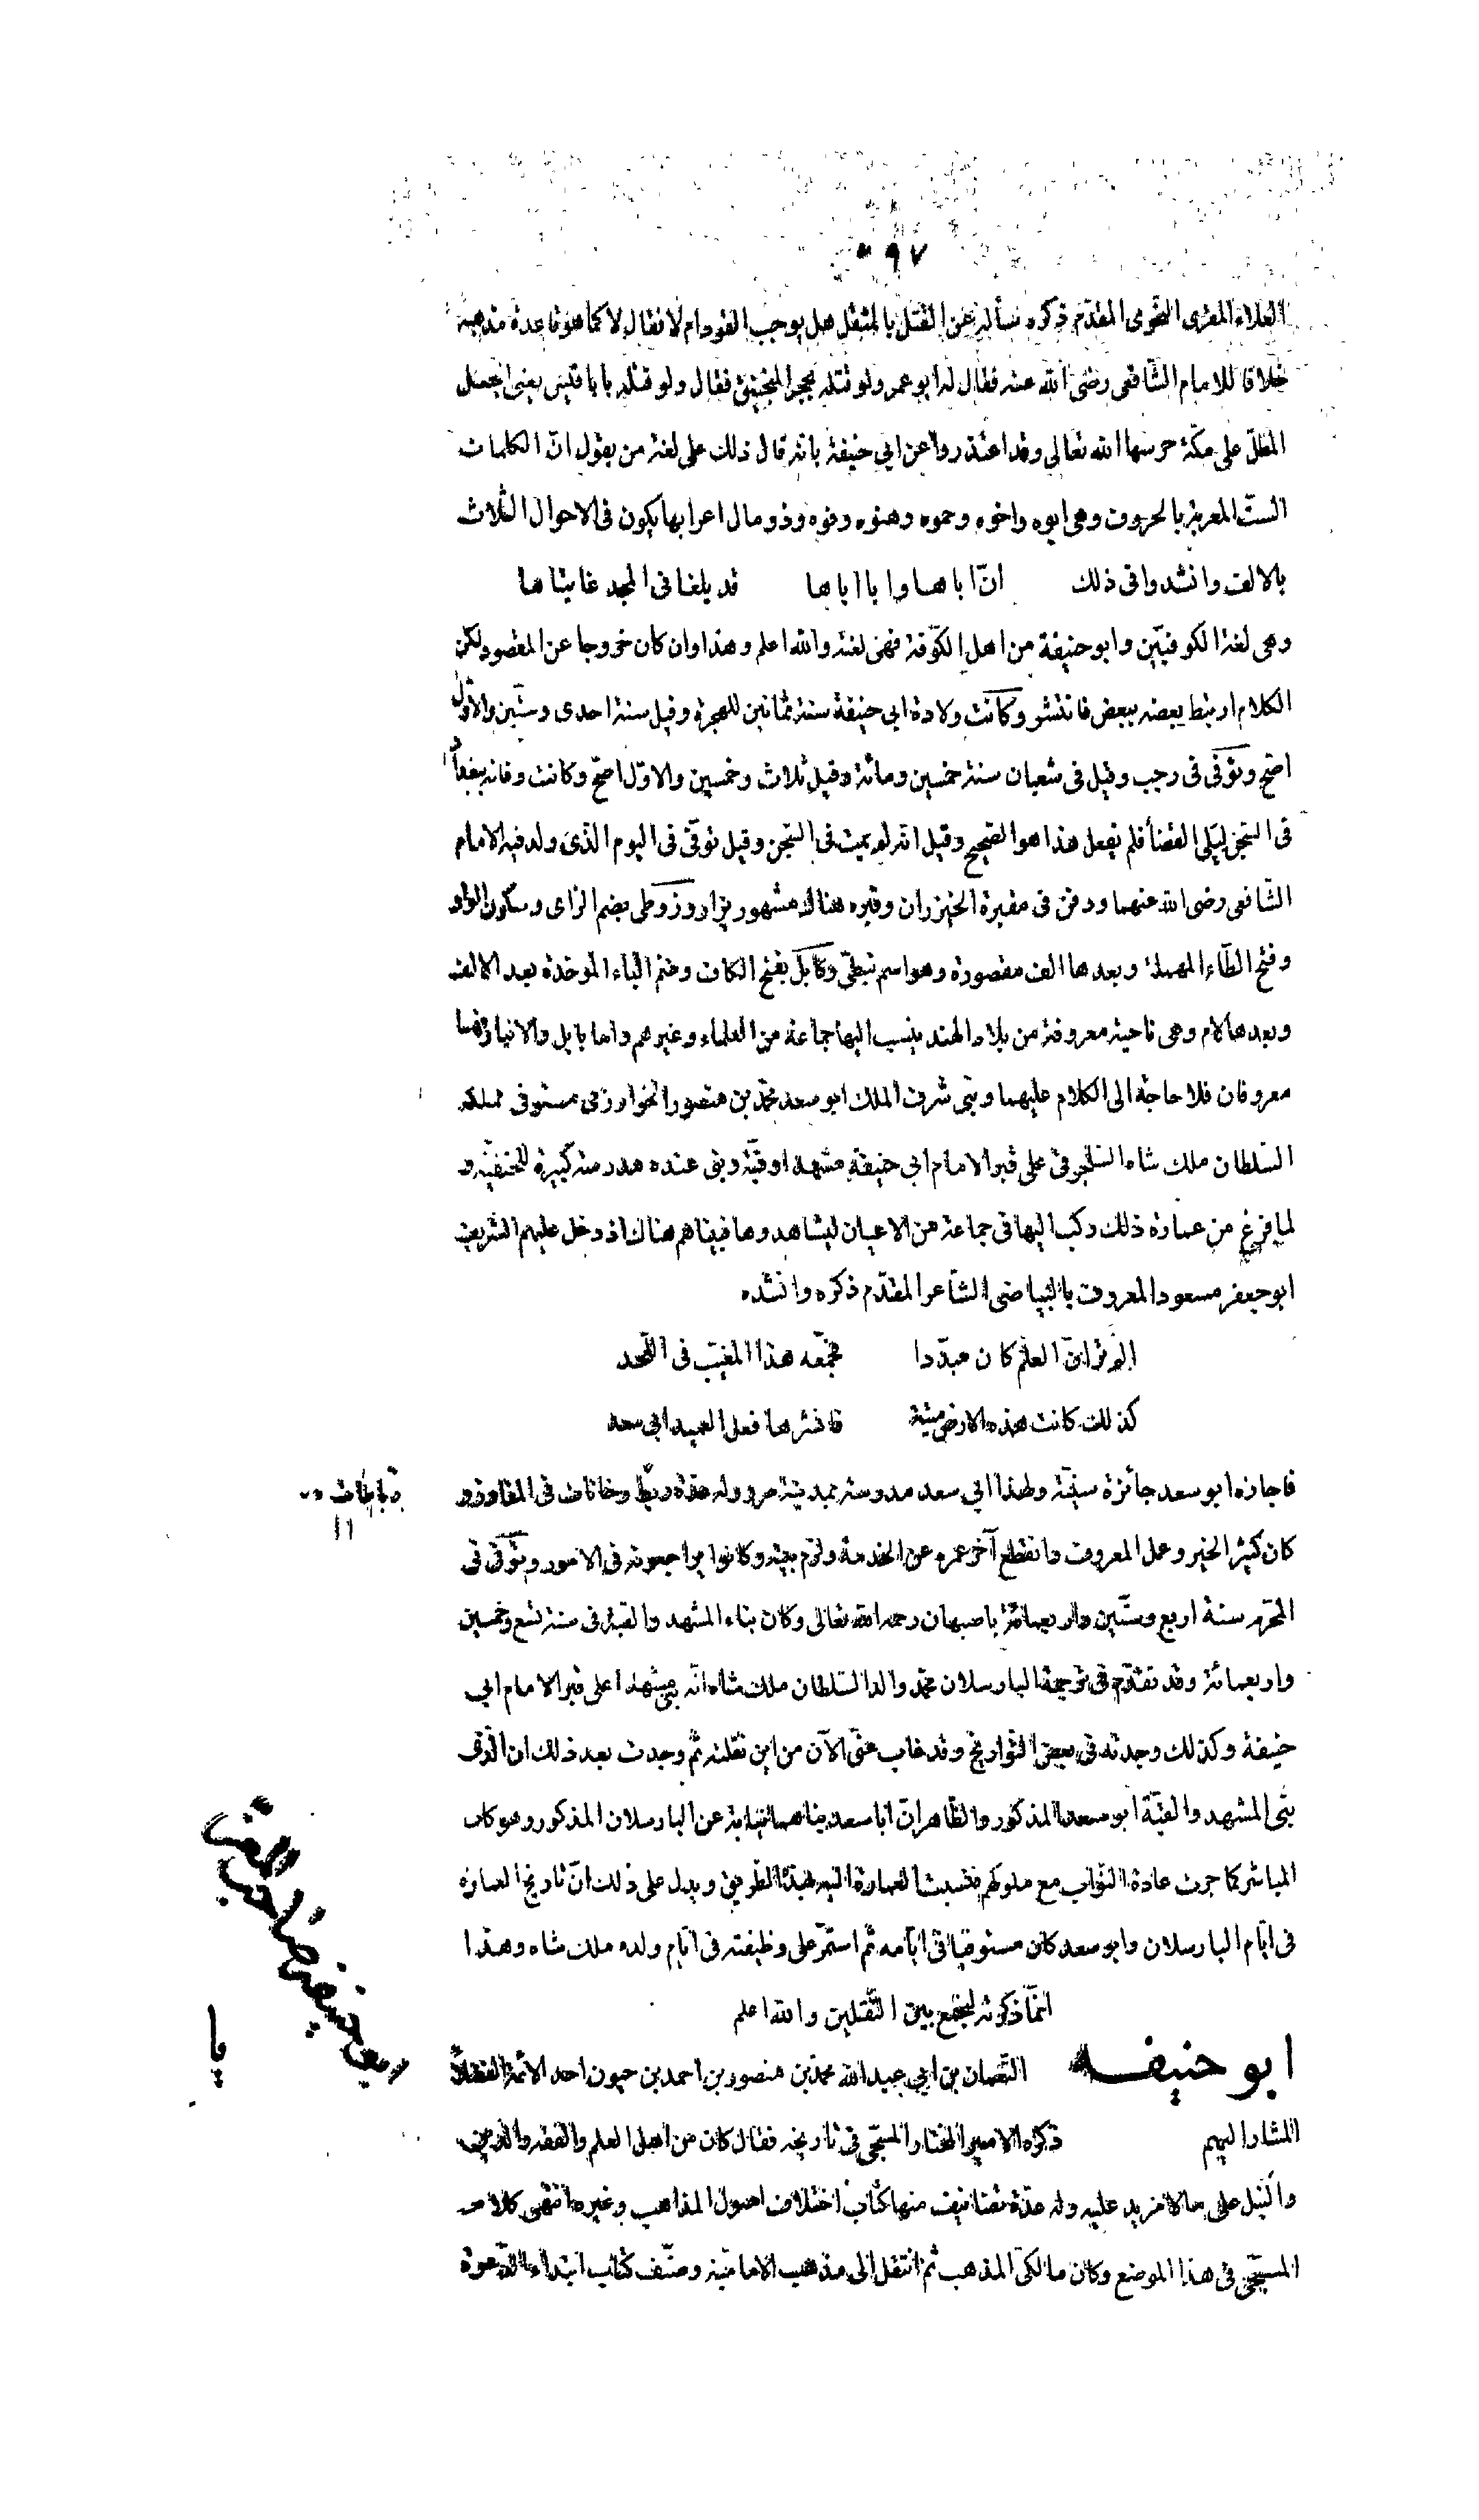 ٩٧
العلاء المقرى النحوى المقدم ذكره سأله عن القتل بالمثقل هل يوجب القود ام لا فقال لا كما هو قاعدة مذهبه
خلافا للامام الشافعى رضى الله عنه فقال له ابو عمر ولو قتله بحجر المنجنيق فقال ولو قتله بابا قبيس يعنى الجبل
المطلّ على مكّة حرسها الله تعالى وقد اعتذروا عن ابى حنيفة بانه قال ذلك على لغة من يقول انّ الكلمات
الستّ المعربة بالحروف وهى ابوه واخوه وحموه وهنوه وفوه وذو مال اعرابها يكون فى الاحوال الثلاث
بالالف وانشدوا فى ذلك انّ اباها وابا اباها قد بلغا فى المجد غايتاها
وهى لغة الكوفيّين وابو حنيفة من اهل الكوفة فهى لغته والله اعلم وهذا وان كان خروجا عن المقصود لكن
الكلام ارتبط بعضه ببعض فانتشر وكانت ولادة ابى حنيفة سنة ثمانين للهجرة وقيل سنة احدى وستّين والاوّل
اصحّ وتوفّى فى رجب وقيل فى شعبان سنة خمسين ومائة وقيل ثلاث وخمسين والاوّل اصحّ وكانت وفاته ببغداد
فى السّجن ليلى القضأ فلم يفعل هذا هو الصّحيح وقيل انه لم يمت فى السّجن وقيل توفّى فى اليوم الذى ولد فيه الامام
الشّافعى رضى الله عنهما ودفن فى مقبرة الخيزران وقبره هناك مشهور يزار وزوطى بضم الزاى وسكون الواو
وفتح الطّاء المهملة وبعدها الف مقصورة وهو اسم نبطىّ وكابل بفتح الكاف وضم الباء الموحّدة بعد الالف
وبعدها لام وهى ناحية معروفة من بلاد الهند ينسب اليها جماعة من العلماء وغيرهم واما بابل والانبار فهما
معروفان فلا حاجة الى الكلام عليهما وبنى شرف الملك ابو سعد محمّد بن منصور الخوارزمى مستوفى مملكه
السّلطان ملك شاه السّلجوقى على قبر الامام ابى حنيفة مشهدا وقبّة وبنى عنده مدرسة كبيرة للحنفيّة و
لما فرغ من عمارة ذلك ركب اليها فى جماعة من الاعيان ليشاهدوها فبيناهم هناك اذ دخل عليهم الشريف
ابو جعفر مسعود المعروف بالبياضى الشّاعر المقدّم ذكره وانشده
الم تر انّ العلم كان مبدّدا فجمّعه هذا المغيّب فى اللّحد
كذلك كانت هذه الارض ميتة فانشرها فعل العميد ابى سعد
فاجازه ابو سعد جائزة سنيّة ولهذا ابى سعد مدرسة بمدينة مرو وله عدّة ربط وخانات فى المفاوز و
كان كثير الخير وعمل المعروف وانقطع آخر عمره عن الخدمة ولزم بيته وكانوا يراجعونه فى الامور وتوفّى فى
المحّرم سنة اربع وستّين واربعمائة باصبهان رحمه الله تعالى وكان بناء المشهد والقبة فى سنة تسع وخمسين
واربعمائة وقد تقدّم فى ترجمة البارسلان محمّد والد السّلطان ملك شاه انّه بنى مشهدا على قبر الامام ابى
حنيفة وكذلك وجدته فى بعض التّواريخ وقد غاب عنّى الآن من اين نقلته ثمّ وجدت بعد ذلك ان الذى
بنى المشهد والقبّة ابو سعد المذكور والظّاهر انّ ابا سعد بناهما نيابة عن البارسلان المذكور وهو كان
المباشر كما جرت عادة النوّاب مع ملوكهم فنسبت العمارة اليه بهذا الطّريق ويدل على ذلك انّ تاريخ العمارة
فى ايّام البارسلان وابو سعد كان مستوفيا فى ايّامه ثم استمرّ على وظيفته فى ايّام ولده ملك شاه وهذا
انّما ذكرته ليجمع بين النّقلين والله اعلم
ابو حنيفه النّعمان بن ابى عبد الله محمّد بن منصور بن احمد بن حيون احد الائمّة الفضلأ
المشار اليهم ذكره الامير المختار المسبّحى فى تاريخه فقال كان من اهل العلم والفقه والدين
والنّبل على مالا مزيد عليه وله عدّة تصانيف منها كتاب اختلاف اصول المذاهب وغيره انتهى كلام
المسبّحى فى هذا الموضع وكان مالكى المذهب ثم انتقل الى مذهب الاماميّة وصنّف كتاب ابتداء الدّعوة